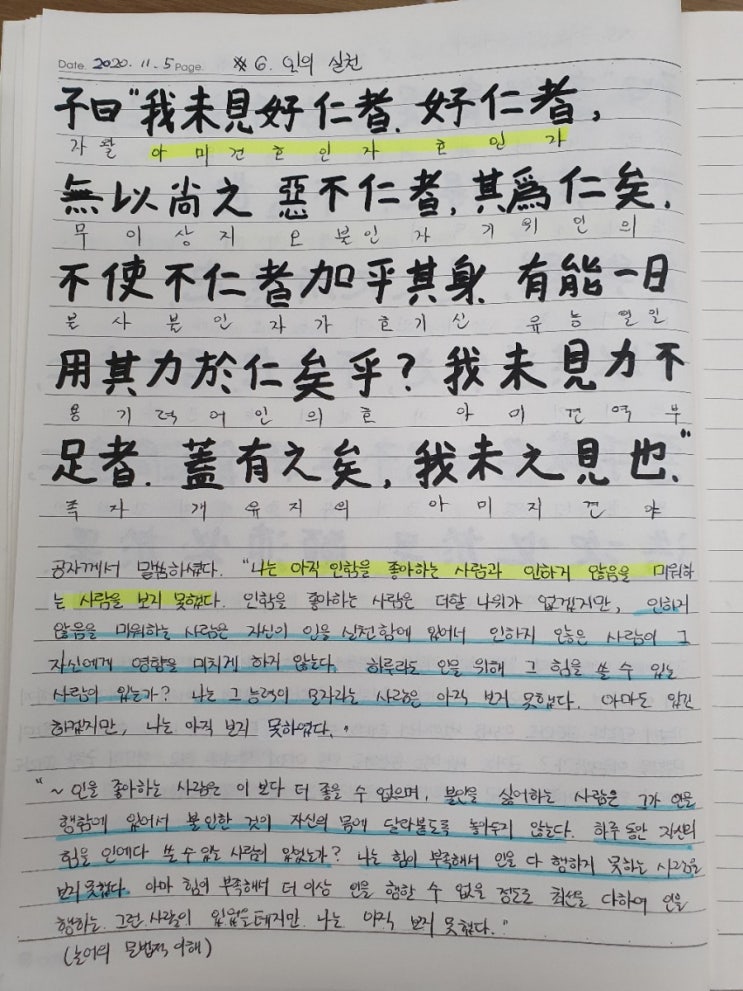 Date. 2020. 11. 5 Page. ※ 6. 인의 실천
子曰 "我未見好仁者. 好仁者,
자 왈 아 미 견 호 인 자 호 인 자
無以尚之 惡不仁者, 其爲仁矣.
무 이 상 지 오 불 인 자 기 위 인 의
不使不仁者加乎其身. 有能一日
불 사 불 인 자 가 호 기 신 유 능 일 일
用其力於仁矣乎? 我未見力不
용 기 력 어 인 의 호 아 미 견 역 부
足者. 蓋有之矣, 我未之見也."
족 자 개 유 지 의 아 미 지 견 야
공자께서 말씀하셨다. "나는 아직 인함을 좋아하는 사람과 인하지 않음을 미워하
는 사람을 보지 못했다. 인함을 좋아하는 사람은 더할 나위가 없겠지만, 인하지
않음을 미워하는 사람은 자신이 인을 실천함에 있어서 인하지 않은 사람이 그
자신에게 영향을 미치게 하지 않는다. 하루라도 인을 위해 그 힘을 쓸 수 있는
사람이 있는가? 나는 그 능력이 모자라는 사람은 아직 보지 못했다. 아마도 있긴
하겠지만, 나는 아직 보지 못하였다."
"~ 인을 좋아하는 사람은 이 보다 더 좋을 수 없으며, 불인을 싫어하는 사람은 그가 인을
행함에 있어서 불인한 것이 자신의 몸에 달라붙도록 놓아두지 않는다. 하루 동안 자신의
힘을 인에다 쓸 수 있는 사람이 있었는가? 나는 힘이 부족해서 인을 다 행하지 못하는 사람을
보지 못했다. 아마 힘이 부족해서 더 이상 인을 행할 수 없을 정도로 최선을 다하여 인을
행하는 그런 사람이 있었을 테지만 나는 아직 보지 못했다."
(논어의 문법적 이해)